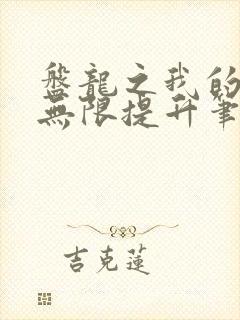 盤龍之我的
無限提升筆
吉克蓮